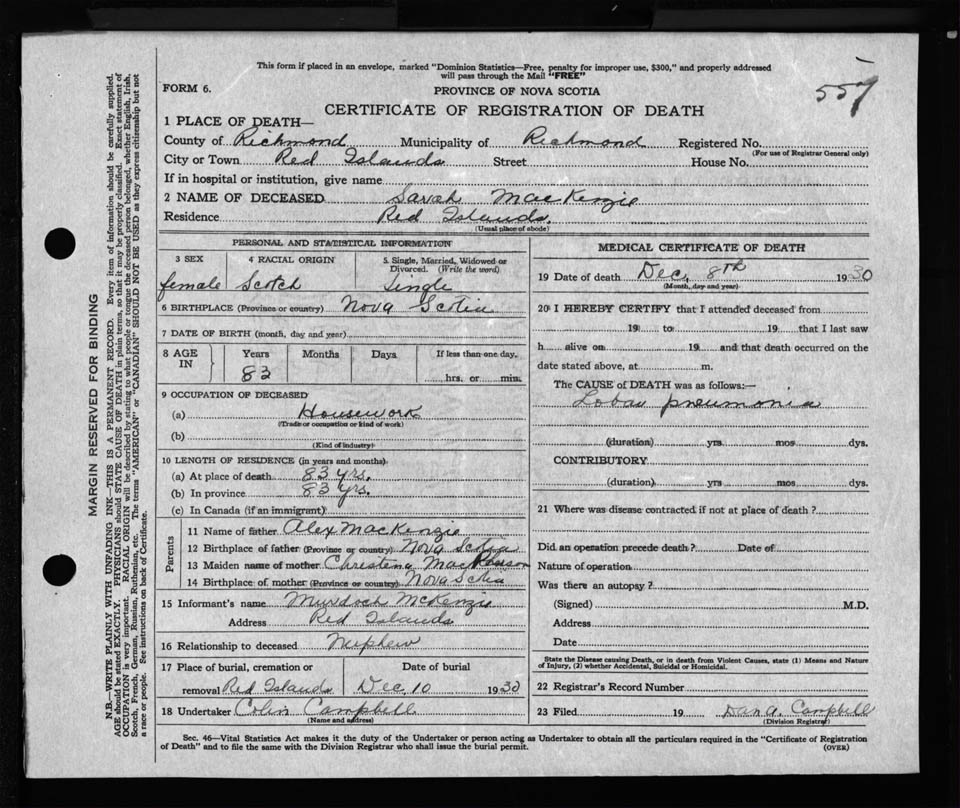 This form if placed in an envelope, marked "Dominion Statistics—Free, penalty for improper use, $300," and properly addressed
will pass through the Mail "FREE"
557
FORM 6.
PROVINCE OF NOVA SCOTIA
CERTIFICATE OF REGISTRATION OF DEATH
1 PLACE OF DEATH—
County of Richmond Municipality of Richmond Registered No.
(For use of Registrar General only)
City or Town Red Islands Street House No.
If in hospital or institution, give name
2 NAME OF DECEASED Sarah MacKenzie
Residence Red Islands.
(Usual place of abode)
PERSONAL AND STATISTICAL INFORMATION
3 SEX 4 RACIAL ORIGIN 5 Single, Married, Widowed or
Divorced. (Write the word)
female Scotch Single
6 BIRTHPLACE (Province or country) Nova Scotia
7 DATE OF BIRTH (month, day and year)
8 AGE IN Years Months Days If less than one day,
83 hrs. or min.
9 OCCUPATION OF DECEASED
(a) Housework
(Trade or occupation or kind of work)
(b)
(Kind of industry)
10 LENGTH OF RESIDENCE (in years and months)
(a) At place of death 83 yrs.
(b) In province 83 yrs.
(c) In Canada (if an immigrant)
Parents
11 Name of father Alex MacKenzie
12 Birthplace of father (Province or country) Nova Scotia
13 Maiden name of mother Christena Mac
14 Birthplace of mother (Province or country) Nova Scotia
15 Informant's name Murdoch McKenzie
Address Red Islands
16 Relationship to deceased Nephew
17 Place of burial, cremation or Date of burial
removal Red Islands Dec 10 1930
18 Undertaker Colin Campbell
(Name and address)
MEDICAL CERTIFICATE OF DEATH
19 Date of death Dec, 8th 1930
(Month, day and year)
20 I HEREBY CERTIFY that I attended deceased from
19 to 19 that I last saw
h alive on 19 and that death occurred on the
date stated above, at m.
The CAUSE of DEATH was as follows:—
Lobar pneumonia
(duration) yrs. mos. dys.
CONTRIBUTORY
(duration) yrs. mos. dys.
21 Where was disease contracted if not at place of death?
Did an operation precede death? Date of
Nature of operation
Was there an autopsy?
(Signed) M.D.
Address
Date
State the Disease causing Death, or in death from Violent Causes, state (1) Means and Nature
of Injury, (2) whether Accidental, Suicidal or Homicidal.
22 Registrar's Record Number
23 Filed 19 Dan A. Campbell
(Division Registrar)
Sec. 46—Vital Statistics Act makes it the duty of the Undertaker or person acting as Undertaker to obtain all the particulars required in the "Certificate of Registration
of Death" and to file the same with the Division Registrar who shall issue the burial permit.
(OVER)
MARGIN RESERVED FOR BINDING
N.B.—WRITE PLAINLY WITH UNFADING INK—THIS IS A PERMANENT RECORD. Every item of information should be carefully supplied.
AGE should be stated EXACTLY. PHYSICIANS should STATE CAUSE OF DEATH in plain terms, so that it may be properly classified. Exact statement of
OCCUPATION is very important. RACIAL ORIGIN will be described by stating to what people or tongue the deceased person belonged, whether English, Irish,
Scotch, French, German, Russian, Ruthenian, etc. The terms "AMERICAN" or "CANADIAN" SHOULD NOT BE USED as they express citizenship but not
a race or people. See instructions on back of Certificate.